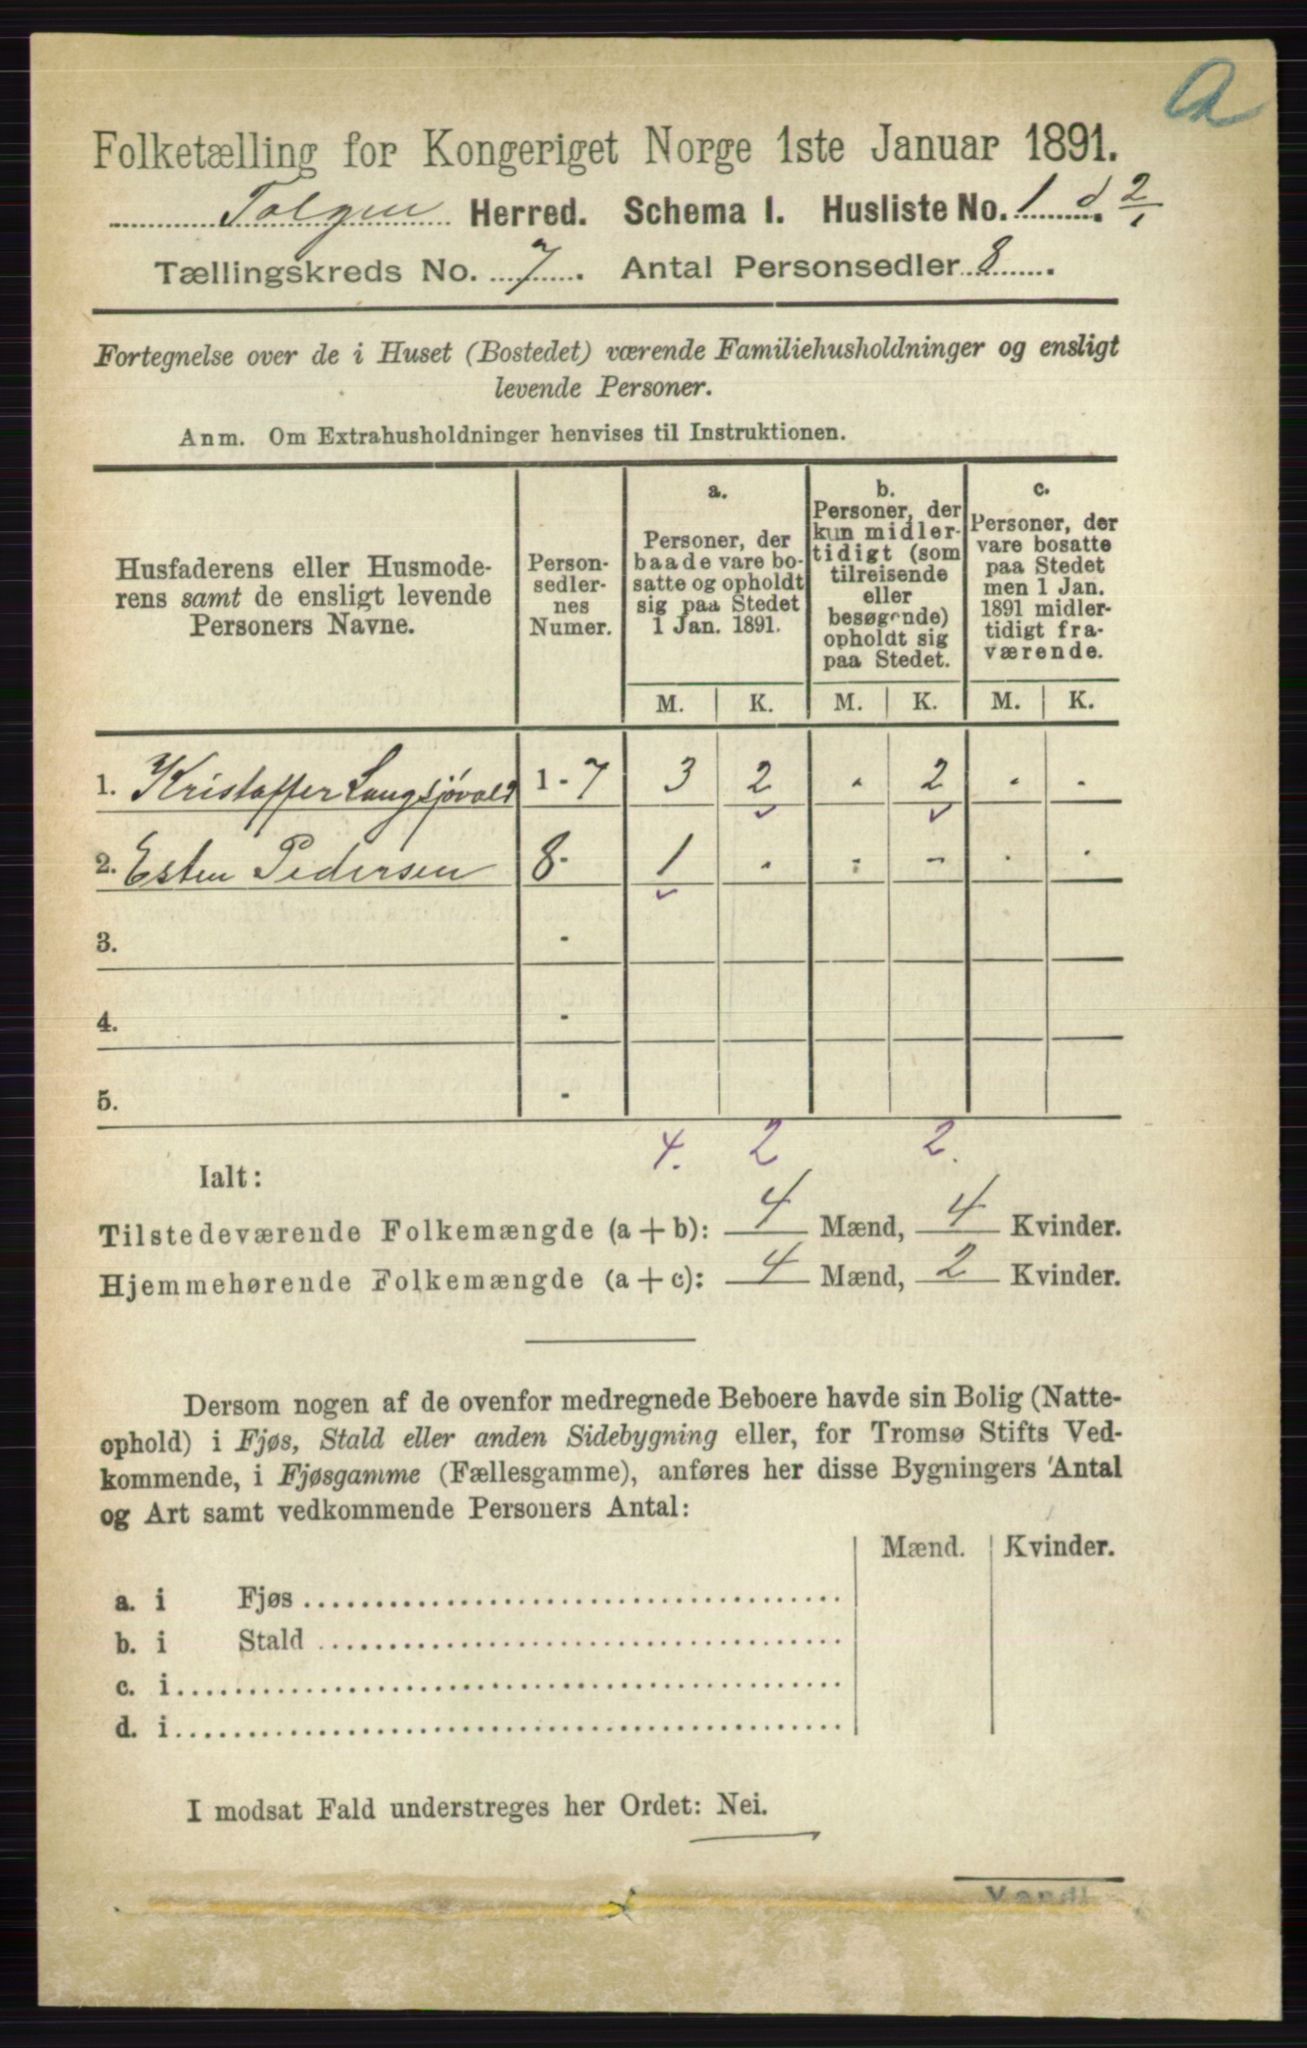 a
Folketælling for Kongeriget Norge 1ste Januar 1891.
Tolgen Herred. Schema I. Husliste No. 1 d 2/1
Tællingskreds No. 7. Antal Personsedler 8.
Fortegnelse over de i Huset (Bostedet) værende Familiehusholdninger og ensligt
levende Personer.
Anm. Om Extrahusholdninger henvises til Instruktionen.
Husfaderens eller Husmode-
rens samt de ensligt levende
Personers Navne.
Person-
sedler-
nes
Numer.
a.
Personer, der
baade vare bo-
satte og opholdt
sig paa Stedet
1 Jan. 1891.
b.
Personer, der
kun midler-
tidigt (som
tilreisende
eller
besøgende)
opholdt sig
paa Stedet.
c.
Personer, der
vare bosatte
paa Stedet
men 1 Jan.
1891 midler-
tidigt fra-
værende.
M. K. M. K. M. K.
1. Kristoffer Langsjøvold 1-7 3 2 - 2 - -
2. Esten Pedersen 8- 1 - - - - -
3. -
4. -
5. -
4. 2 2.
Ialt:
Tilstedeværende Folkemængde (a + b): 4 Mænd, 4 Kvinder.
Hjemmehørende Folkemængde (a + c): 4 Mænd, 2 Kvinder.
Dersom nogen af de ovenfor medregnede Beboere havde sin Bolig (Natte-
ophold) i Fjøs, Stald eller anden Sidebygning eller, for Tromsø Stifts Ved-
kommende, i Fjøsgamme (Fællesgamme), anføres her disse Bygningers Antal
og Art samt vedkommende Personers Antal:
Mænd. Kvinder.
a. i Fjøs
b. i Stald
c. i
d. i
I modsat Fald understreges her Ordet: Nei.
Vend!